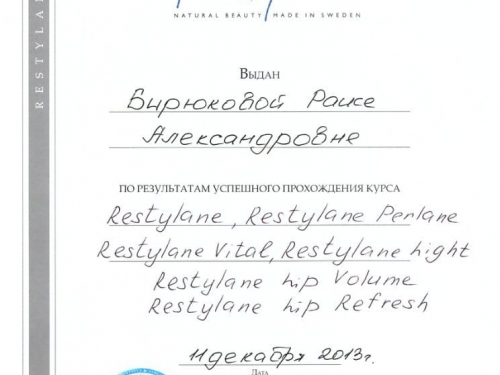 RESTYLA
NATURAL BEAUTY MADE IN SWEDEN
Выдан
Бирюковой Раисе
Александровне
ПО РЕЗУЛЬТАТАМ УСПЕШНОГО ПРОХОЖДЕНИЯ КУРСА
Restylane, Restylane Perlane
Restylane Vital, Restylane Light
Restylane Lip Volume
Restylane Lip Refresh
11 декабря 2013г.
Дата